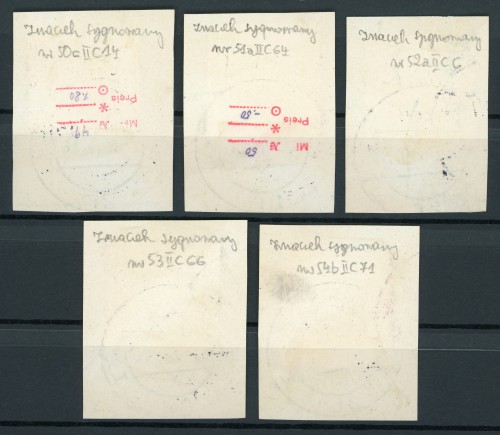 Znaczek sygnowany
nr 50c II C14
1.80
Preis
Mi №
49
Znaczek sygnowany
nr 51a II C64
-.50
Preis
Mi №
50
Znaczek sygnowany
nr 52a II C6
Znaczek sygnowany
nr 53 II C66
Znaczek sygnowany
nr 54b II C71